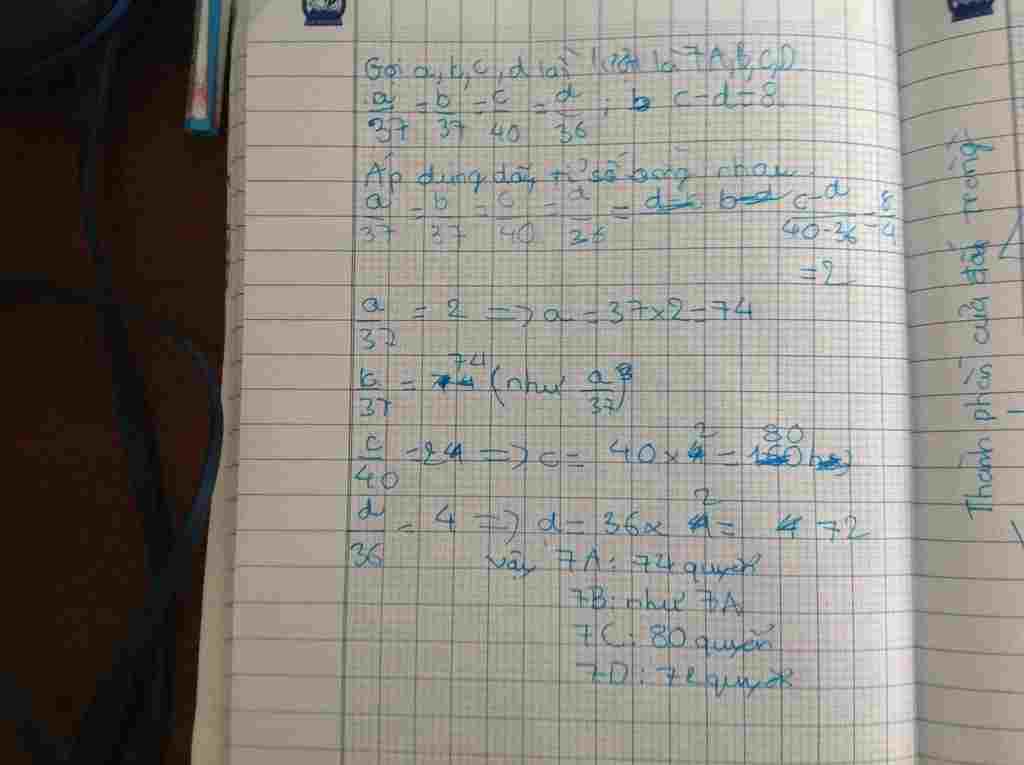 Gọi a, b, c, d lần lượt là 7A, B, C, D
a/37 = b/37 = c/40 = d/36 ; c - d = 8
Áp dụng dãy tỉ số bằng nhau
a/37 = b/37 = c/40 = d/36 = c-d/40-36 = 8/4
= 2
a/37 = 2 => a = 37 x 2 = 74
b/37 = 74 (như a/37)
c/40 = 2 => c = 40 x 2 = 80
d/36 = 4 => d = 36 x 2 = 72
vậy 7A: 74 quyển
7B: như 7A
7C: 80 quyển
7D: 72 quyển
Thành phần của đất trồng